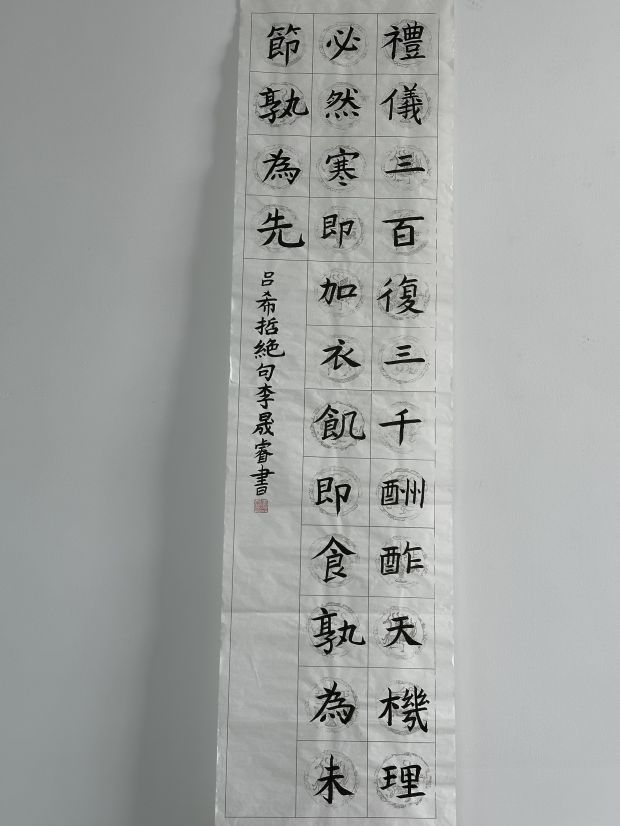 禮儀三百復三千酬酢天機理
必然寒即加衣飢即食孰為末
節孰為先
呂希哲絶句李晟睿書